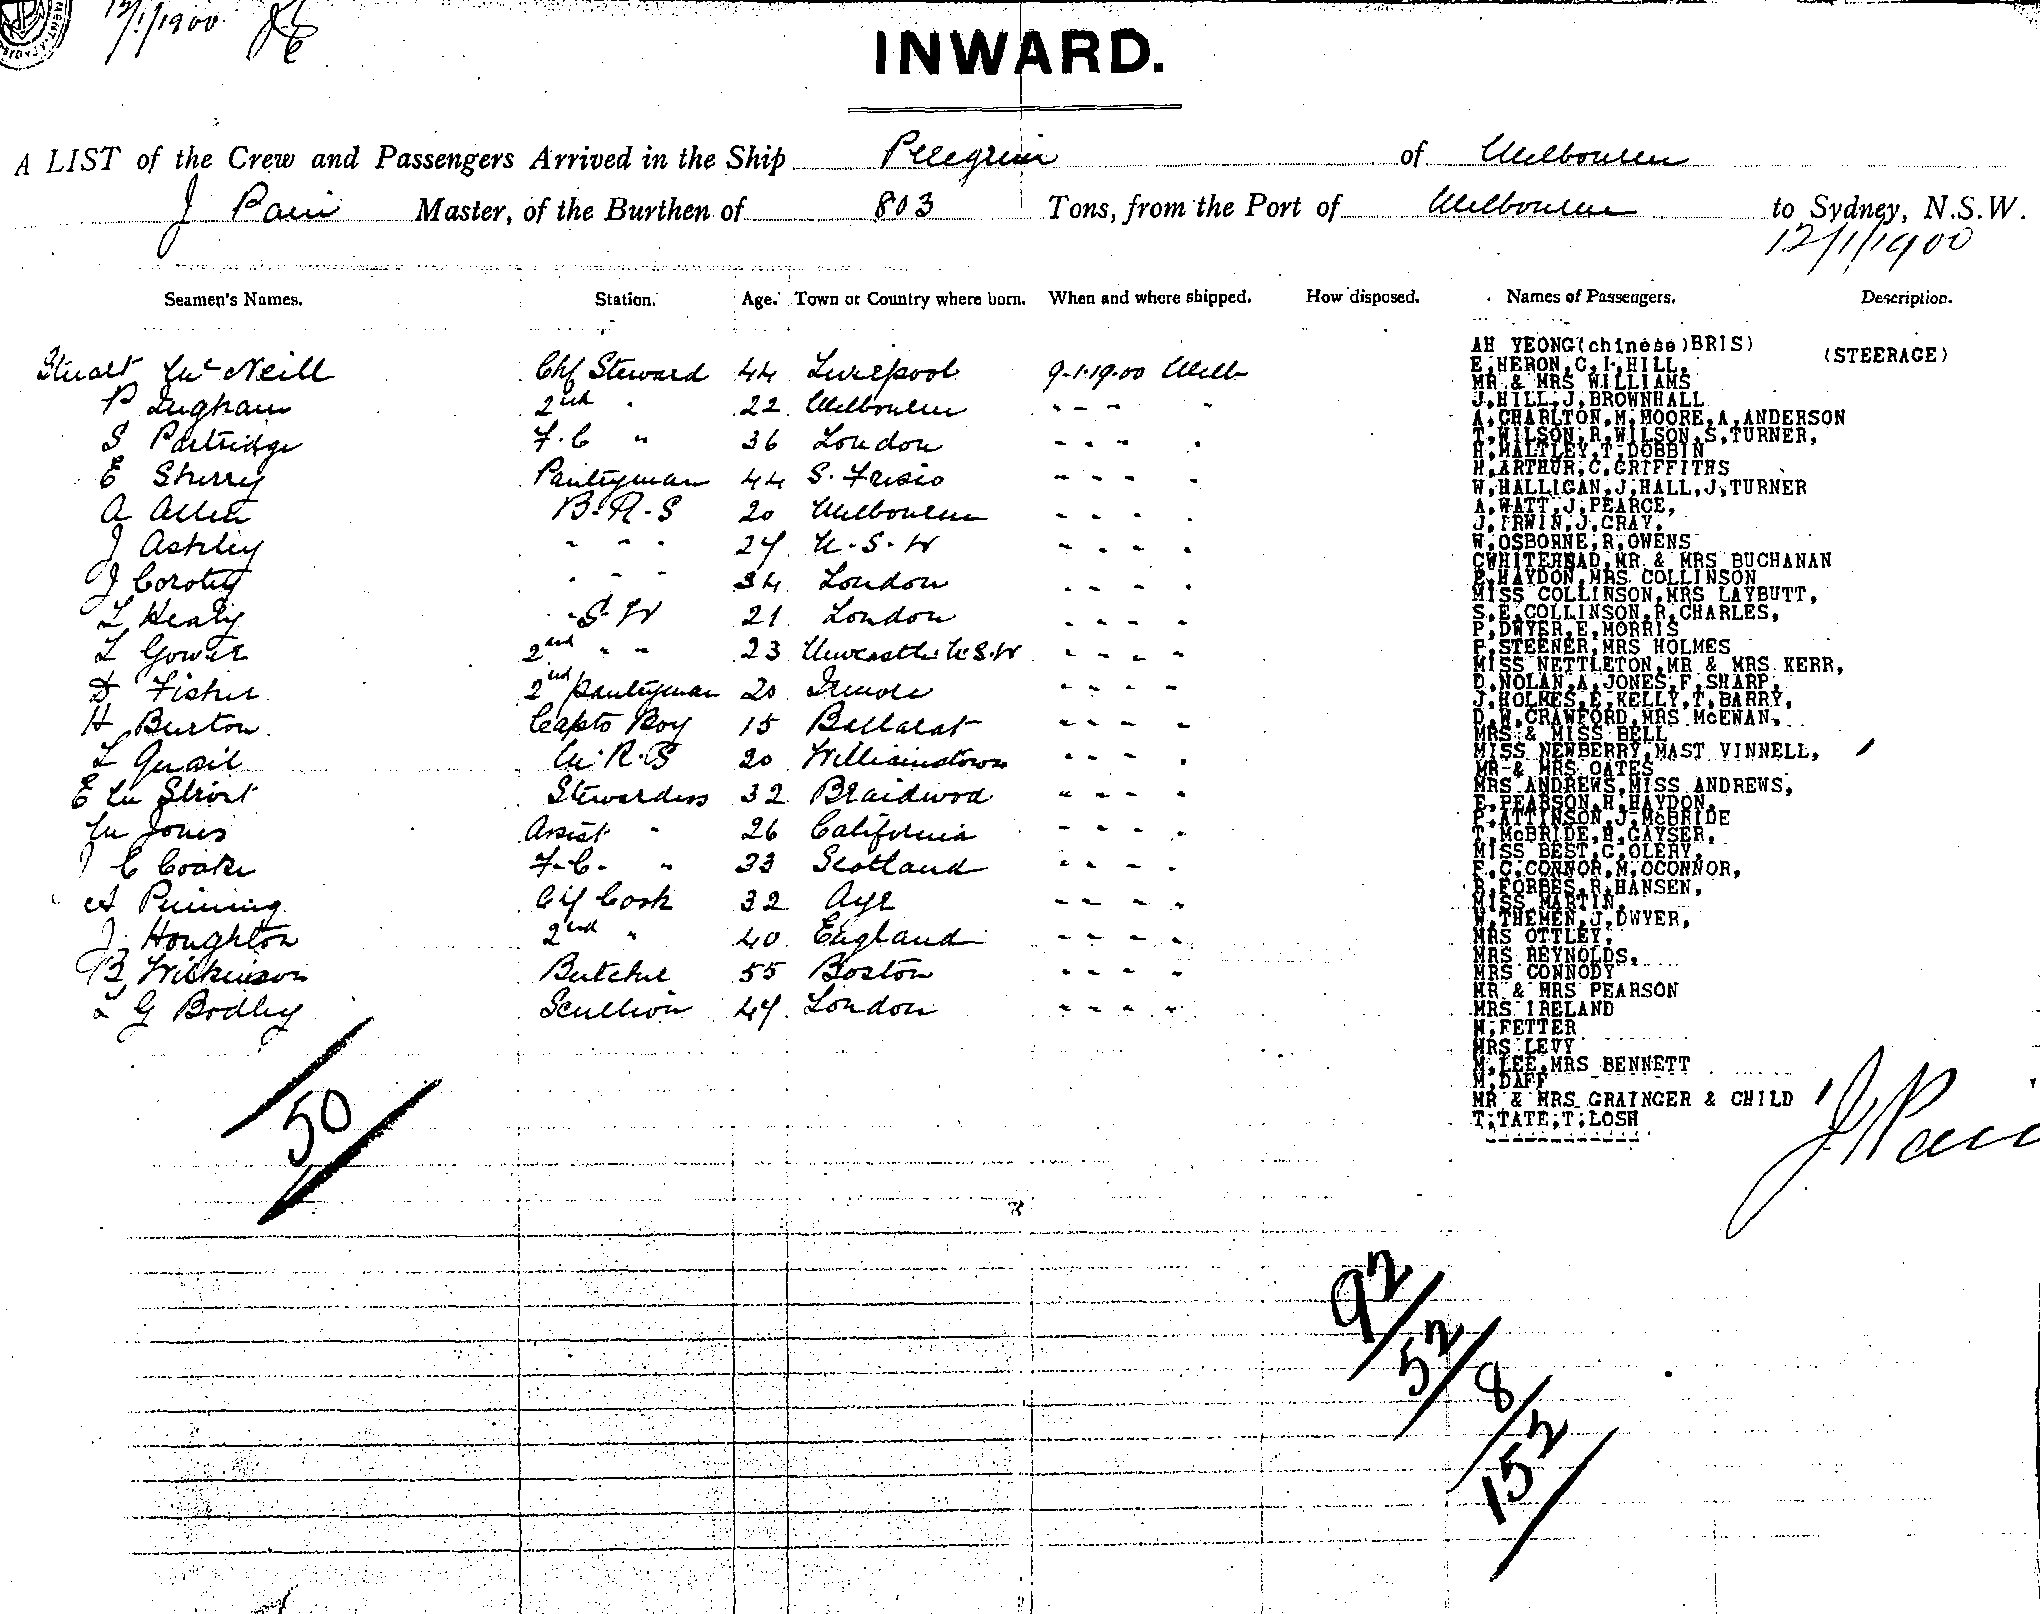 12/1/1900
INWARD.
A LIST of the Crew and Passengers Arrived in the Ship Peregrine of Melbourne
J Pain Master, of the Burthen of 803 Tons, from the Port of Melbourne to Sydney, N.S.W.
12/1/1900
Seamen's Names. Station. Age. Town or Country where born. When and where shipped. How disposed. Names of Passengers. Description.
Stuart McNeill Chf Steward 44 Liverpool 9.1.1900 Melb
P Ingham 2nd " 22 Melbourne " " " "
S Partridge F.C " 36 London " " " "
E Sherry Pantryman 44 S. Frisio " " " "
A Allen B.R.S 20 Melbourne " " " "
J Ashley " " " 27 N.S.W " " " "
J " " " 34 London " " " "
L Healy " S.W 21 London " " " "
L Gower 2nd " " 23 Newcastle N.S.W " " " "
D Fisher 2nd pantryman 20 " " " "
H Burton Capts Boy 15 Ballarat " " " "
L Quail M.R.S 20 Williamstown " " " "
E Stewardess 32 Braidwood " " " "
M Jones Assist " 26 California " " " "
J C Cooke F.C. " 33 Scotland " " " "
A Chf Cook 32 Ayr " " " "
J Houghton 2nd " 40 England " " " "
B Wilkinson Butcher 55 Boston " " " "
L G Bodley Scullion 47 London " " " "
AH YEONG(chinese)BRIS) (STEERAGE)
E.HERON,C.I.HILL,
MR & MRS WILLIAMS
J.HILL,J.BROWNHALL
A.CHARLTON,M.MOORE,A.ANDERSON
T.WILSON,R.WILSON,S.TURNER,
H.MALTLEY,T.DOBBIN
H.ARTHUR,C.GRIFFITHS
W.HALLIGAN,J.HALL,J.TURNER
A.WATT,J.PEARCE,
J.IRWIN,J.GRAY,
W.OSBORNE,R.OWENS
CWHITEHEAD,MR & MRS BUCHANAN
E.HAYDON,MRS COLLINSON
MISS COLLINSON,MRS LAYBUTT,
S.E.COLLINSON,R.CHARLES,
P.DWYER,E.MORRIS
P.STEENER,MRS HOLMES
MISS NETTLETON,MR & MRS KERR,
D.NOLAN,A.JONES,F.SHARP,
J.HOLMES,E.KELLY,T.BARRY,
D.W.CRAWFORD,MRS McEWAN,
MRS & MISS BELL
MISS NEWBERRY,MAST VINNELL,
MR & MRS OATES
MRS ANDREWS,MISS ANDREWS,
E.PEARSON,H.HAYDON,
P.ATTINSON,J.McBRIDE
T.McBRIDE,H.GAYSER,
MISS BEST,G.OLERY,
F.C.CONNOR,M.OCONNOR,
R.FORBES,R.HANSEN,
MISS MARTIN,
W.THEMEN,J.DWYER,
MRS OTTLEY,
MRS REYNOLDS,
MRS CONNODY
MR & MRS PEARSON
MRS IRELAND
N.FETTER
MRS LEVY
M.LEE,MRS BENNETT
M.DAFF
MR & MRS GRAINGER & CHILD
T.TATE,T.LOSH
J Pain
50
92
52
8
152